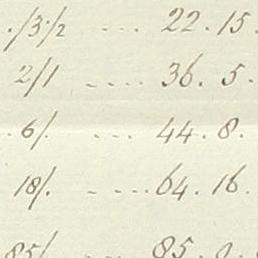 ./3½ ... 22.15.
2/1 .... 36. 5.
. 6/. ... 44.8.
18/. ....64.16.
85/ ... 85.0.